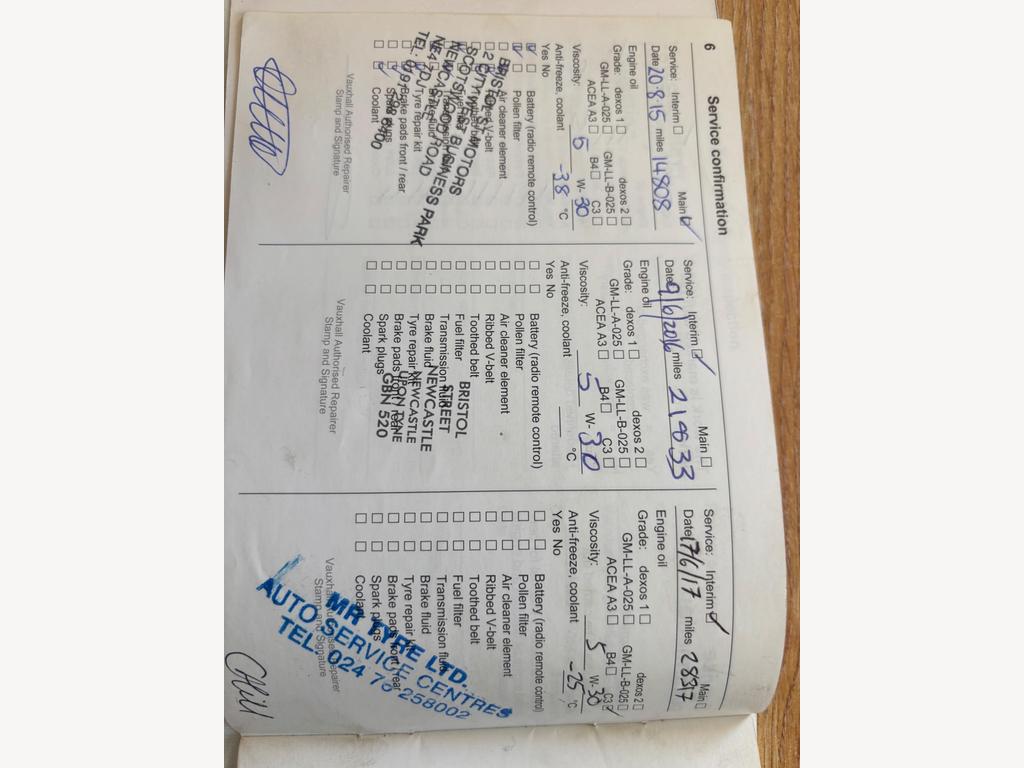 6
Service confirmation
Service: Interim ☐ Main ☑
Date 20·8·15 miles 14808
Engine oil
Grade: dexos 1 ☐ dexos 2 ☐
GM-LL-A-025 ☐ GM-LL-B-025 ☐
ACEA A3 ☐ B4 ☐ C3 ☐
Viscosity: 5 W- 30
Anti-freeze, coolant -38 °C
Yes No
Battery (radio remote control)
Pollen filter
Air cleaner element
V-belt
Brake fluid
Tyre repair kit
Brake pads front / rear
Coolant
MOTORS
BUSINESS PARK
ROAD
TEL:
Vauxhall Authorised Repairer
Stamp and Signature
Service: Interim ☑ Main ☐
Date 9/6/2016 miles
Engine oil
Grade: dexos 1 ☐ dexos 2 ☐
GM-LL-A-025 ☐ GM-LL-B-025 ☐
ACEA A3 ☐ B4 ☐ C3 ☐
Viscosity: 5 W- 30
Anti-freeze, coolant °C
Yes No
Battery (radio remote control)
Pollen filter
Air cleaner element
Ribbed V-belt
Toothed belt
Fuel filter
Transmission fluid
Brake fluid
Tyre repair kit
Brake pads front / rear
Spark plugs
Coolant
BRISTOL
STREET
NEWCASTLE
NEWCASTLE
UPON TYNE
GBN 520
Vauxhall Authorised Repairer
Stamp and Signature
Service: Interim ☑ Main ☐
Date 17/6/17 miles 28317
Engine oil
Grade: dexos 1 ☐ dexos 2 ☐
GM-LL-A-025 ☐ GM-LL-B-025 ☐
ACEA A3 ☐ B4 ☐ C3 ☑
Viscosity: 5 W- 30
Anti-freeze, coolant -25 °C
Yes No
Battery (radio remote control)
Pollen filter
Air cleaner element
Ribbed V-belt
Toothed belt
Fuel filter
Transmission fluid
Brake fluid
Tyre repair kit
Brake pads front / rear
Spark plugs
Coolant
MR TYRE LTD.
AUTO SERVICE CENTRES
TEL: 024 76 258002
Vauxhall Authorised Repairer
Stamp and Signature